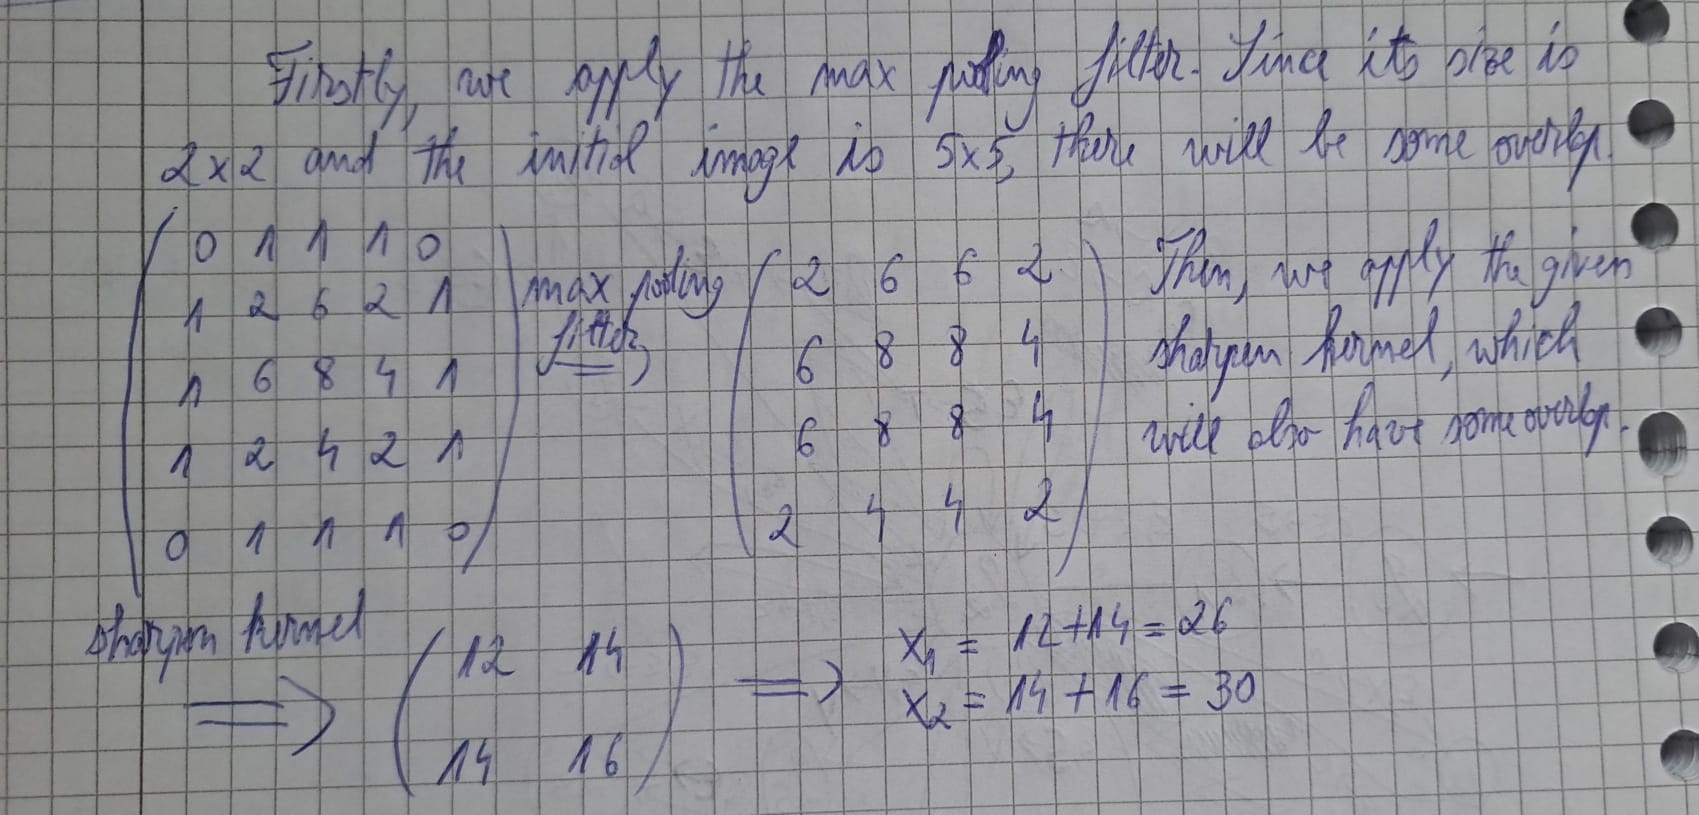 Firstly, we apply the max pooling filter. Since its size is
2x2 and the initial image is 5x5, there will be some overlap.
0 1 1 1 0
1 2 6 2 1
1 6 8 4 1
1 2 4 2 1
0 1 1 1 0
max pooling
filter
=>
2 6 6 2
6 8 8 4
6 8 8 4
2 4 4 2
Then, we apply the given
sharpen kernel, which
will also have some overlap.
sharpen kernel
=>
12 14
14 16
=>
x₁ = 12+14 = 26
x₂ = 14+16 = 30